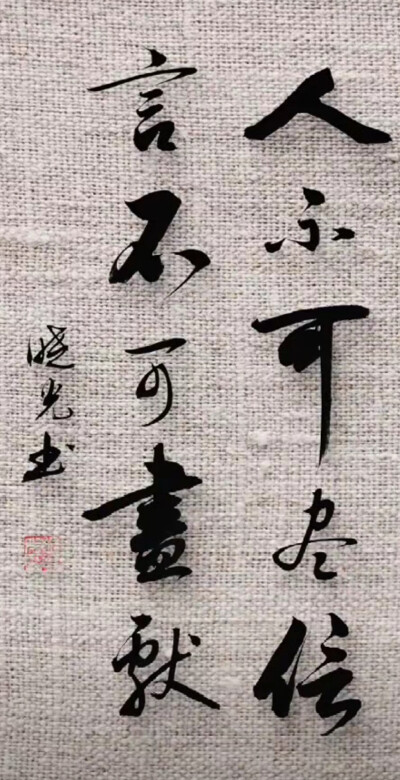 人不可尽信
言不可盡獻
晓光书